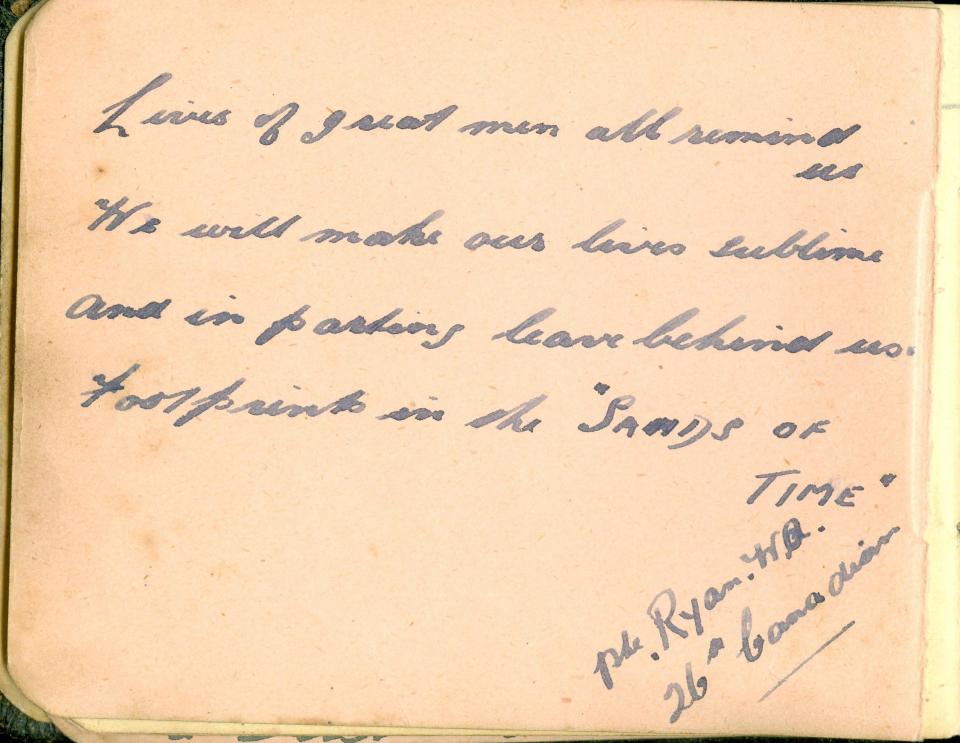 Lives of great men all remind
us
We will make our lives sublime
And in parting leave behind us.
Footprints in the "SANDS OF
TIME"
Pte. Ryan. W.A.
26th Canadian